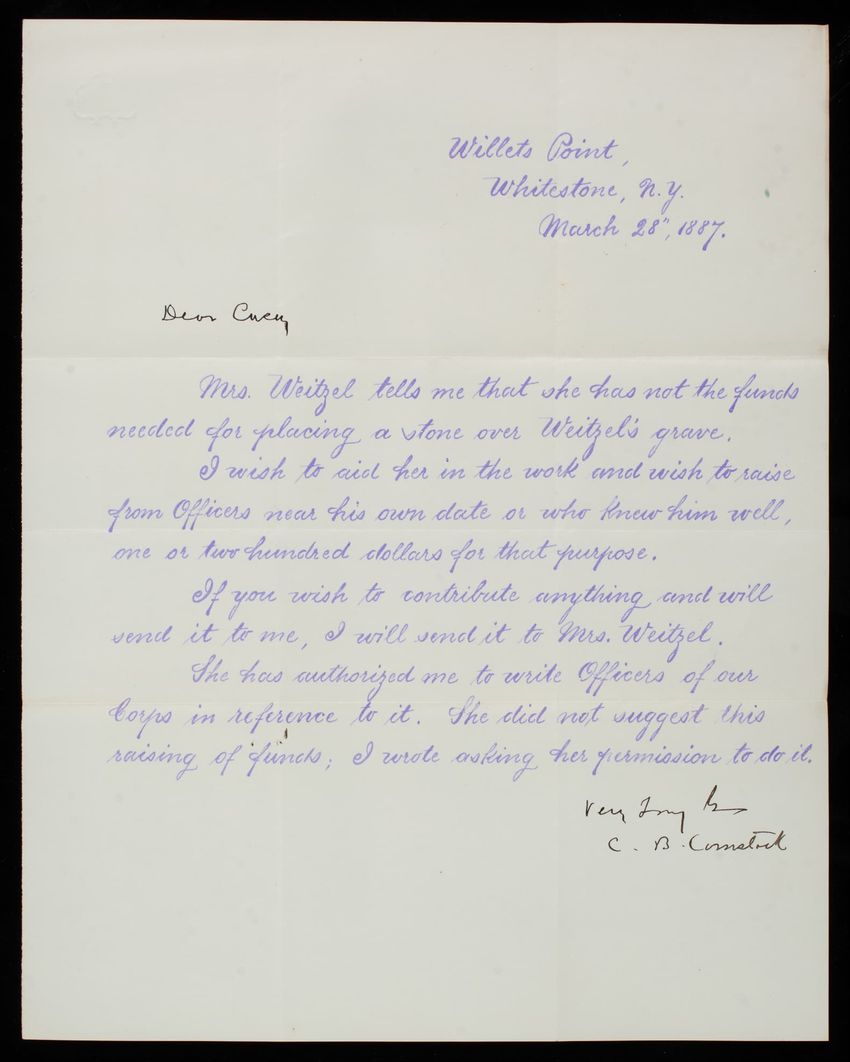 Willets Point,
Whitestone, N.Y.
March 28", 1887.
Dear Casey
Mrs. Weitzel tells me that she has not the funds
needed for placing a stone over Weitzel's grave.
I wish to aid her in the work and wish to raise
from Officers near his own date or who knew him well,
one or two hundred dollars for that purpose.
If you wish to contribute anything and will
send it to me, I will send it to Mrs. Weitzel.
She has authorized me to write Officers of our
Corps in reference to it. She did not suggest this
raising of funds; I wrote asking her permission to do it.
Very Truly
C. B. Comstock